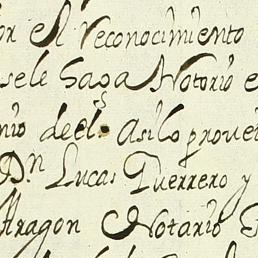 or el reconocimiento
sele haga Notorio e
nio de el: Asi lo provei
Dn Lucas Guerrero y
Aragon Notario